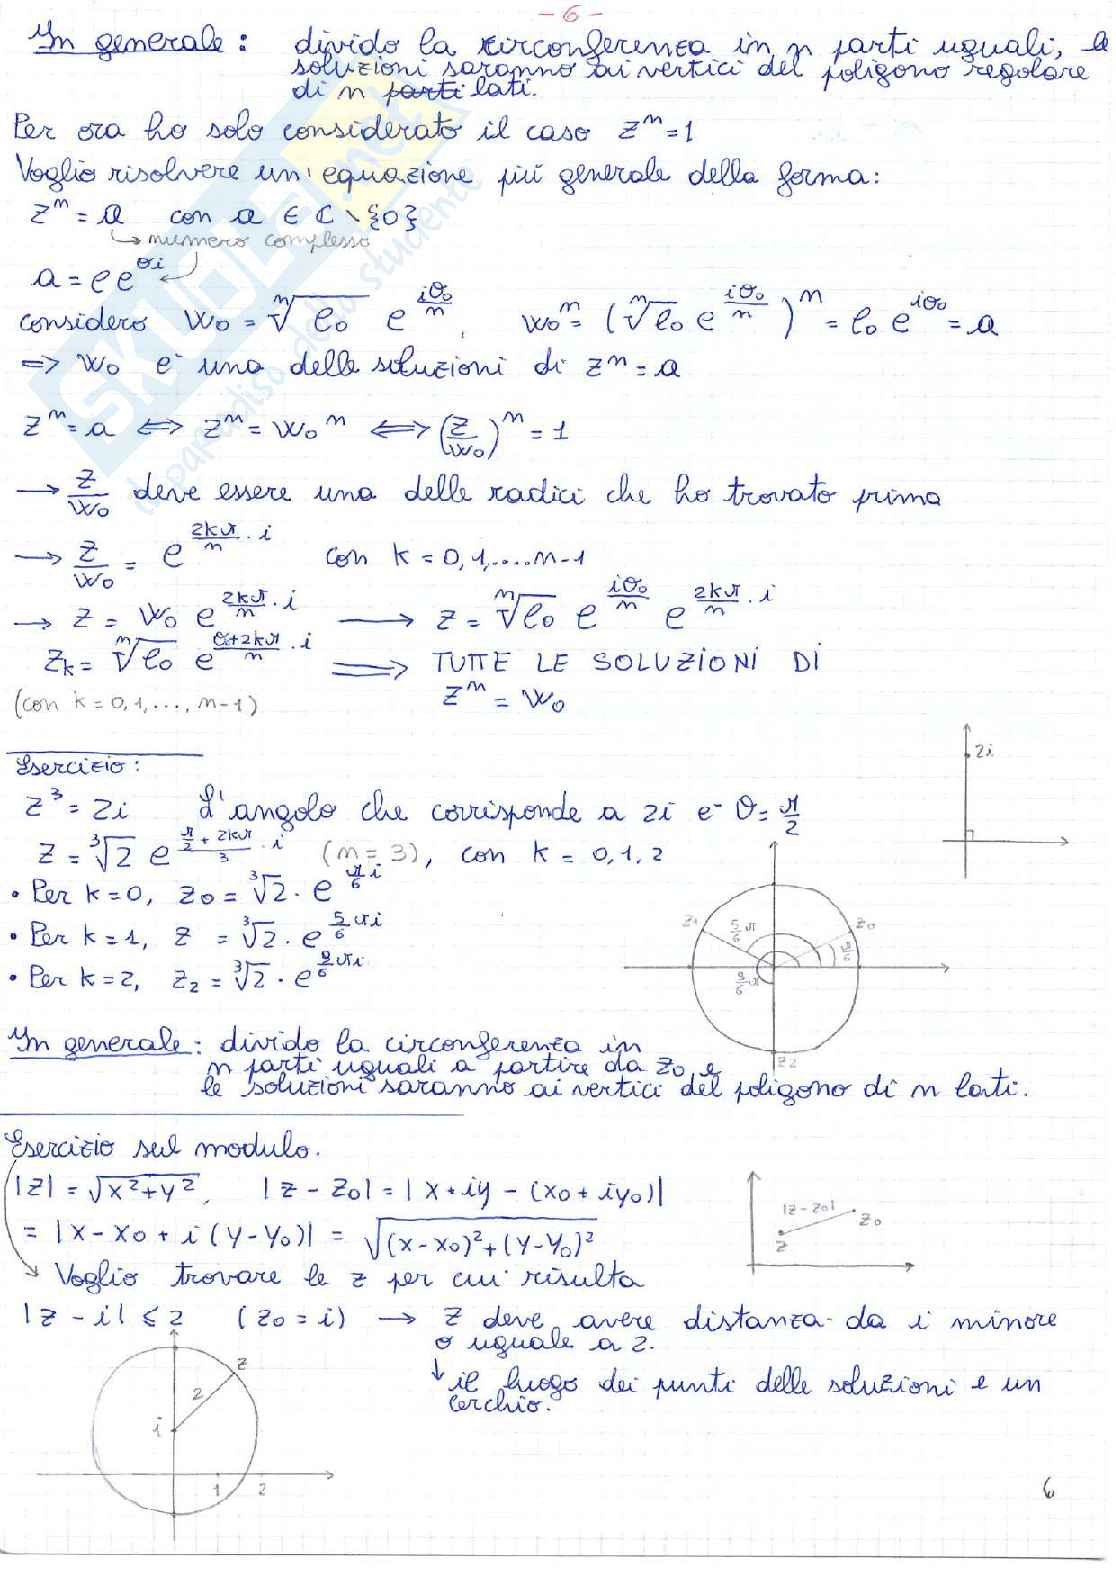 - 6 -
In generale: divido la circonferenza in n parti uguali, le
soluzioni saranno ai vertici del poligono regolare
di n parti lati.
Per ora ho solo considerato il caso zⁿ = 1
Voglio risolvere un'equazione più generale della forma:
zⁿ = a con a ∈ ℂ \ {0}
↳ numero complesso
a = ρ e^(θi)
considero w₀ = ⁿ√ρ₀ e^(iθ₀/n), w₀ⁿ = (ⁿ√ρ₀ e^(iθ₀/n))ⁿ = ρ₀ e^(iθ₀) = a
⇒ w₀ è una delle soluzioni di zⁿ = a
zⁿ = a ⇔ zⁿ = w₀ⁿ ⇔ (z/w₀)ⁿ = 1
→ z/w₀ deve essere una delle radici che ho trovato prima
→ z/w₀ = e^(2kπ/n · i) con k = 0, 1, .... n-1
→ z = w₀ e^(2kπ/n · i) → z = ⁿ√ρ₀ e^(iθ₀/n) e^(2kπ/n · i)
z_k = ⁿ√ρ₀ e^((θ+2kπ)/n · i) ⇒ TUTTE LE SOLUZIONI DI
(con k = 0, 1, ..., n-1) zⁿ = w₀
Esercizio:
2i
z³ = 2i L'angolo che corrisponde a 2i è θ = π/2
z = ³√2 e^((π/2 + 2kπ)/3 · i) (n = 3), con k = 0, 1, 2
• Per k = 0, z₀ = ³√2 · e^(π/6 i)
• Per k = 1, z = ³√2 · e^(5/6 πi)
• Per k = 2, z₂ = ³√2 · e^(9/6 πi)
z₁ 5/6 π z₀ π/6
9/6 π
z₂
In generale: divido la circonferenza in
n parti uguali a partire da z₀ e
le soluzioni saranno ai vertici del poligono di n lati.
Esercizio sul modulo.
|z| = √(x²+y²), |z - z₀| = |x + iy - (x₀ + iy₀)|
= |x - x₀ + i (y - y₀)| = √((x-x₀)²+(y-y₀)²)
|z - z₀| z₀
z
→ Voglio trovare le z per cui risulta
|z - i| ≤ 2 (z₀ = i) → z deve avere distanza da i minore
o uguale a 2.
↓ il luogo dei punti delle soluzioni è un
cerchio.
z
2
i
1 2
6
SKUOLA.net
il paradiso dello studente